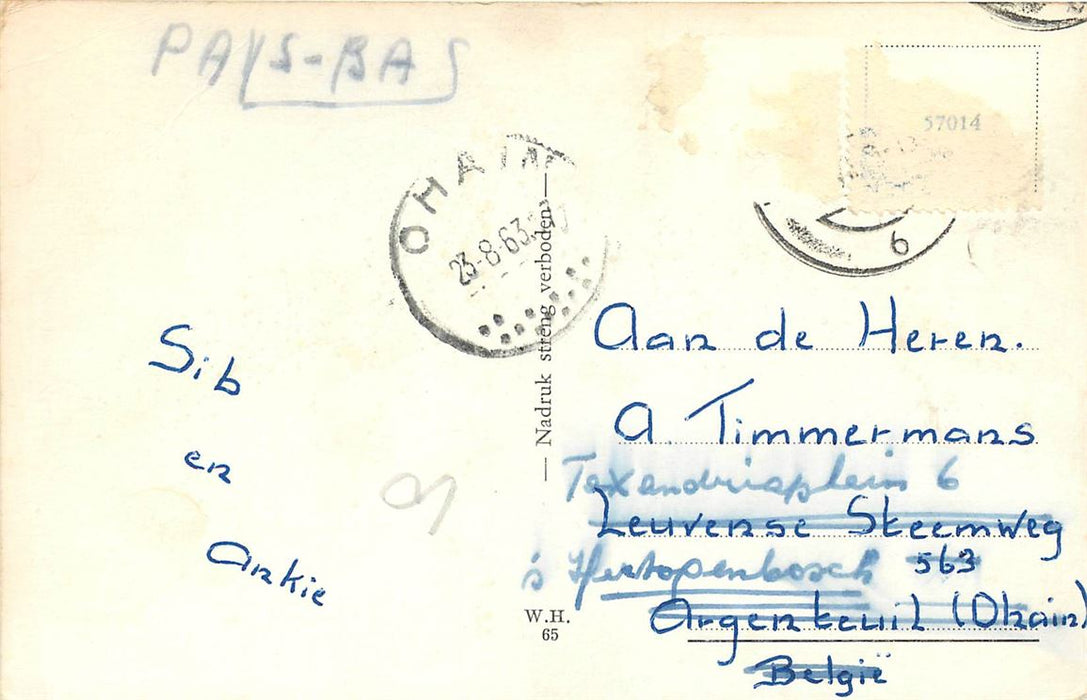 PAYS-BAS
57014
OHAIN
23-8-63
6
— Nadruk streng verboden —
Sib
en
Ankie
Aan de Heren.
A. Timmermans
Texandriaplein 6
Leuvense Steemweg
's Hertogenbosch 563
Argenteuil (Ohain)
België
W.H.
65